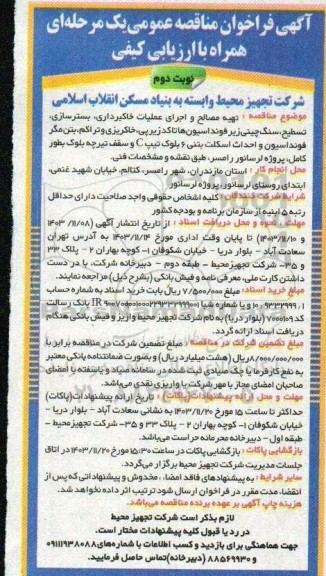 آگهی فراخوان مناقصه عمومی یک مرحله‌ای
همراه با ارزیابی کیفی
نوبت دوم
شرکت تجهیز محیط وابسته به بنیاد مسکن انقلاب اسلامی
موضوع مناقصه : تهیه مصالح و اجرای عملیات خاکبرداری، بسترسازی،
تسطیح، سنگ‌چینی زیر فونداسیون‌ها تا کد زیر پی، خاکریزی و تراکم، بتن مگر
فونداسیون و احداث اسکلت بتنی ۶ بلوک تیپ C و سقف تیرچه بلوک بطور
کامل، پروژه لرسانور رامسر، طبق نقشه و مشخصات فنی.
محل انجام کار : استان مازندران، شهر رامسر، کتالم، خیابان شهید غنمی،
ابتدای روستای لرسانور، پروژه لرسانور
شرایط شرکت کنندگان : کلیه اشخاص حقوقی واجد صلاحیت دارای حداقل
رتبه ۵ ابنیه از سازمان برنامه و بودجه کشور
مهلت، نحوه و محل دریافت اسناد : از تاریخ انتشار آگهی (۱۴۰۳/۱۱/۰۸
و ۱۴۰۳/۱۱/۱۰) تا پایان وقت اداری مورخ ۱۴۰۳/۱۱/۱۴ به آدرس تهران
سعادت آباد - بلوار دریا - خیابان شکوفان ۱- کوچه بهاران ۲ - پلاک ۳۳
و ۳۵- شرکت تجهیز محیط - طبقه دوم - دبیرخانه شرکت، با در دست
داشتن کارت ملی، معرفی نامه و فیش بانکی (بشرح ذیل) مراجعه نمایند.
مبلغ خرید اسناد: مبلغ ۷/۵۰۰/۰۰۰ ریال بابت خرید اسناد به شماره حساب
و یا شماره شبا بانک رسالت
کد ۷۰۰۰۱۰۹ (بلوار دریا) به نام شرکت تجهیز محیط واریز و فیش بانکی هنگام
دریافت اسناد ارائه گردد.
مبلغ تضمین شرکت در مناقصه : مبلغ تضمین شرکت در مناقصه برابر با
۸/۰۰۰/۰۰۰/۰۰۰ریال (هشت میلیارد ریال) و بصورت ضمانتنامه بانکی معتبر
به نفع کارفرما یا چک صیادی ثبت شده در سامانه صیاد و پاسفته با امضای
صاحبان امضای مجاز با مهر شرکت یا واریزی نقدی می‌باشد.
مهلت و محل ارائه پیشنهادات (پاکات) : تاریخ ارائه پیشنهادات (پاکات)
حداکثر تا ساعت ۱۵ مورخ ۱۴۰۳/۱۱/۲۰ به نشانی سعادت آباد - بلوار دریا -
خیابان شکوفان ۱- کوچه بهاران ۲ - پلاک ۳۳ و ۳۵- شرکت تجهیز محیط -
طبقه اول - دبیرخانه محرمانه حراست می‌باشد.
بازگشایی پاکات : بازگشایی پاکات در ساعت ۱۵:۳۰ مورخ ۱۴۰۳/۱۱/۲۰ در اتاق
جلسات مدیریت شرکت تجهیز محیط برگزار می‌گردد.
سایر شرایط : به پیشنهادهای فاقد امضاء، مخدوش و پیشنهاداتی که پس از
انقضاء مدت مقرر در فراخوان ارسال شود ترتیب اثر داده نخواهد شد.
هزینه چاپ آگهی بر عهده برنده مناقصه می‌باشد.
لازم بذکر است شرکت تجهیز محیط
در رد یا قبول کلیه پیشنهادات مختار است.
جهت هماهنگی برای بازدید و کسب اطلاعات با شماره‌های ۰۹۱۱۱۹۳۸۰۸۸
و ۸۸۵۶۹۹۳۰ (دبیرخانه) تماس حاصل فرمایید.